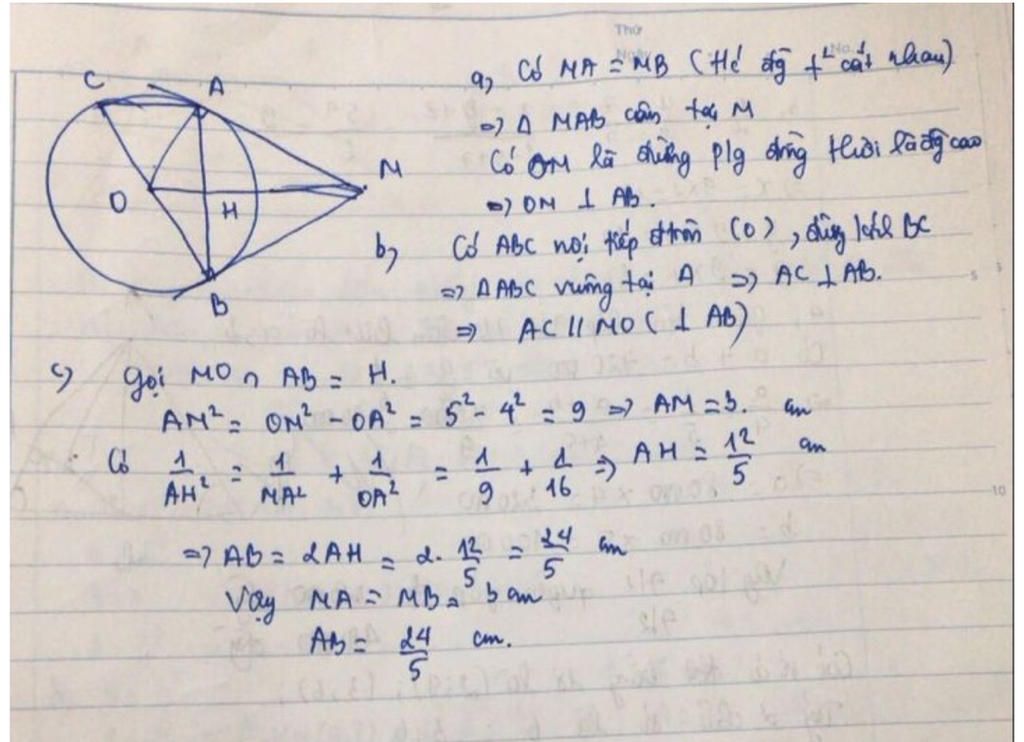 Thứ
Ngày
No.
C
A
M
O
H
B
a, Có MA = MB (t/c đg t² cắt nhau)
=> Δ MAB cân tại M
Có OM là đường p/g đồng thời là đg cao
=> OM ⊥ AB.
b, Có ABC nội tiếp đtròn (O), đường kính BC
=> ΔABC vuông tại A => AC ⊥ AB.
=> AC // MO (⊥ AB)
c, Gọi MO ∩ AB = H.
AM² = OM² - OA² = 5² - 4² = 9 => AM = 3. cm
Có 1/AH² = 1/MA² + 1/OA² = 1/9 + 1/16 => AH = 12/5 cm
=> AB = 2AH = 2. 12/5 = 24/5 cm
Vậy MA = MB = 3 cm
AB = 24/5 cm.
5
10